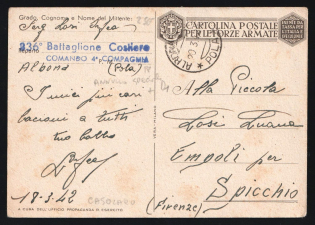 Grado, Cognome e Nome del Mittente:
Serg Losi
236° Battaglione Costiero
COMANDO 4ª COMPAGNIA
Albona (Pola)
I miei più cari
bacioni a tutti
tuo babbo
18-3-42
A CURA DELL'UFFICIO PROPAGANDA DI ESERCITO
CARTOLINA POSTALE
PER LE FORZE ARMATE
POLA
Alla Piccola
Losi Luana
Empoli per
Spicchio
(Firenze)